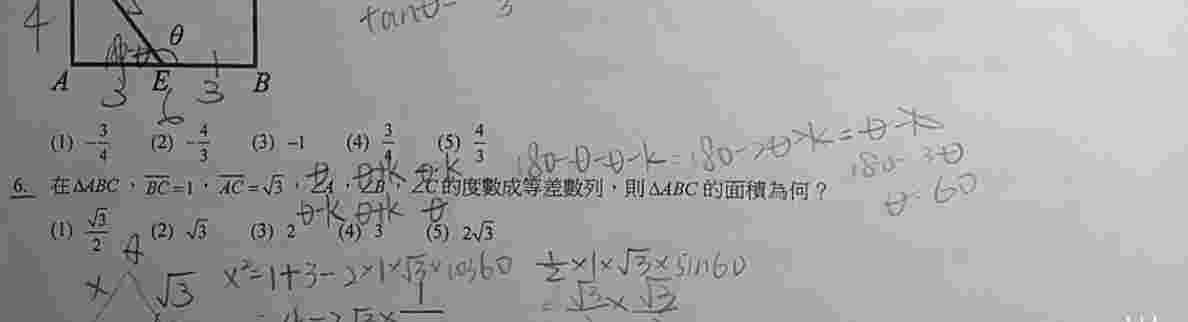 4 tanθ= 3
θ
A 3 E 3 B
6
(1) -3/4 (2) -4/3 (3) -1 (4) 3/4 (5) 4/3
180-θ-θ-k=180-2θ-k=θ-k
180=3θ
θ=60
6. 在ΔABC，BC=1，AC=√3，∠A，∠B，∠C的度數成等差數列，則ΔABC的面積為何？
θ-k θ+k θ
(1) √3/2 (2) √3 (3) 2 (4) 3 (5) 2√3
A
x √3 x²=1+3-2×1×√3×cos60 1/2×1×√3×sin60
=4-2√3×1 =√3×√3